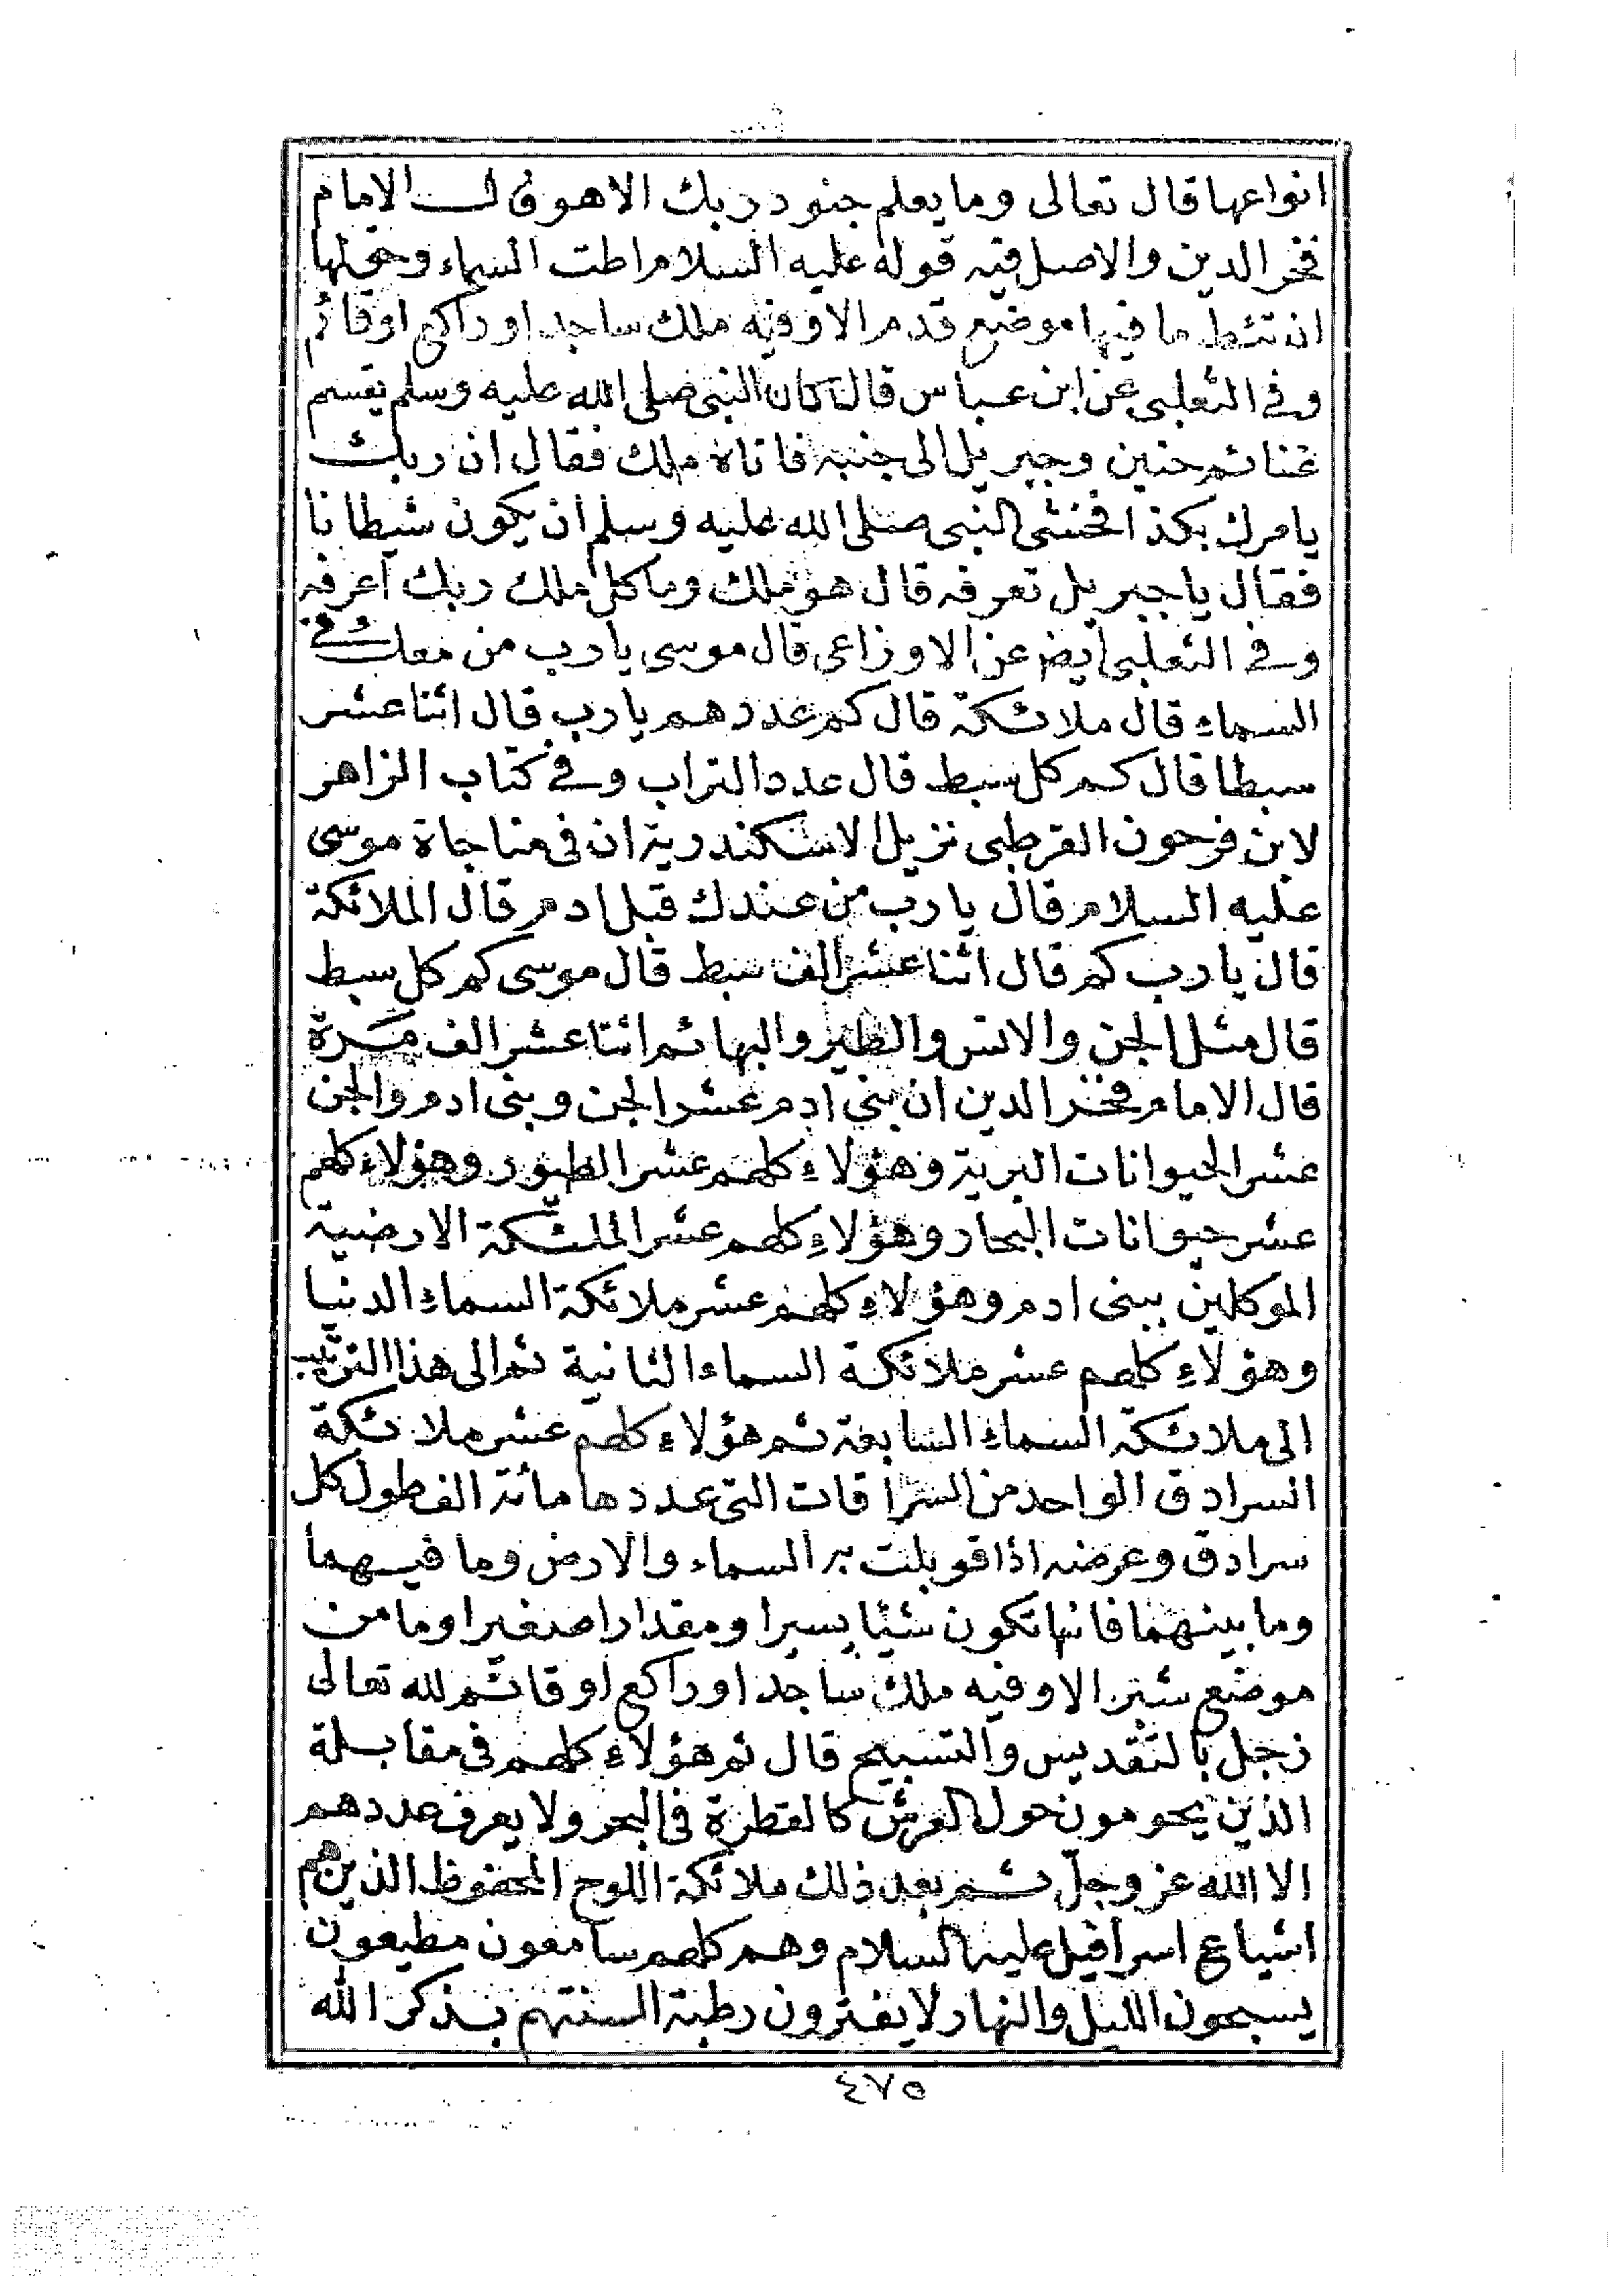 انواعها قال تعالى وما يعلم جنود ربك الا هو قال الامام
فخر الدين والاصل فيه قوله عليه السلام اطت السماء وحق لها
ان تئط ما فيها موضع قدم الا وفيه ملك ساجد او راكع او قائم
وفي الثعلبي عن ابن عباس قال كان النبي صلى الله عليه وسلم يقسم
غنائم حنين وجبريل الى جنبه فاتاه ملك فقال ان ربك
يامرك بكذا فخشى النبي صلى الله عليه وسلم ان يكون شيطانا
فقال يا جبريل تعرفه قال هو ملك وما كل ملك ربك اعرفه
وفي الثعلبي ايضا عن الاوزاعي قال موسى يا رب من معك في
السماء قال ملائكة قال كم عددهم يا رب قال اثنا عشر
سبطا قال كم كل سبط قال عدد التراب وفي كتاب الزاهر
لابن فرحون القرطبي نزيل الاسكندرية ان في مناجاة موسى
عليه السلام قال يا رب من عندك قبل ادم قال الملائكة
قال يا رب كم قال اثنا عشر الف سبط قال موسى كم كل سبط
قال مثل الجن والانس والطير والبهائم اثنا عشر الف مرة
قال الامام فخر الدين ان بني ادم عشر الجن وبني ادم والجن
عشر الحيوانات البرية وهؤلاء كلهم عشر الطيور وهؤلاء كلهم
عشر حيوانات البحار وهؤلاء كلهم عشر الملئكة الارضية
الموكلين ببني ادم وهؤلاء كلهم عشر ملائكة السماء الدنيا
وهؤلاء كلهم عشر ملائكة السماء الثانية ثم الى هذا الترتيب
الى ملائكة السماء السابعة ثم هؤلاء كلهم عشر ملائكة
السرادق الواحد من السراقات التي عددها مائة الف طول كل
سرادق وعرضه اذا قوبلت به السماء والارض وما فيهما
وما بينهما فانها تكون شيئا يسيرا ومقدارا صغيرا وما من
موضع شبر الا وفيه ملك ساجد او راكع او قائم لله تعالى
زجل بالتقديس والتسبيح قال ثم هؤلاء كلهم في مقابلة
الذين يحومون حول العرش كالقطرة في البحر ولا يعرف عددهم
الا الله عز وجل ثم بعد ذلك ملائكة اللوح المحفوظ الذين هم
اشياع اسرافيل عليه السلام وهم كلهم سامعون مطيعون
يسبحون الليل والنهار لا يفترون رطبة السنتهم بذكر الله
٤٧٥